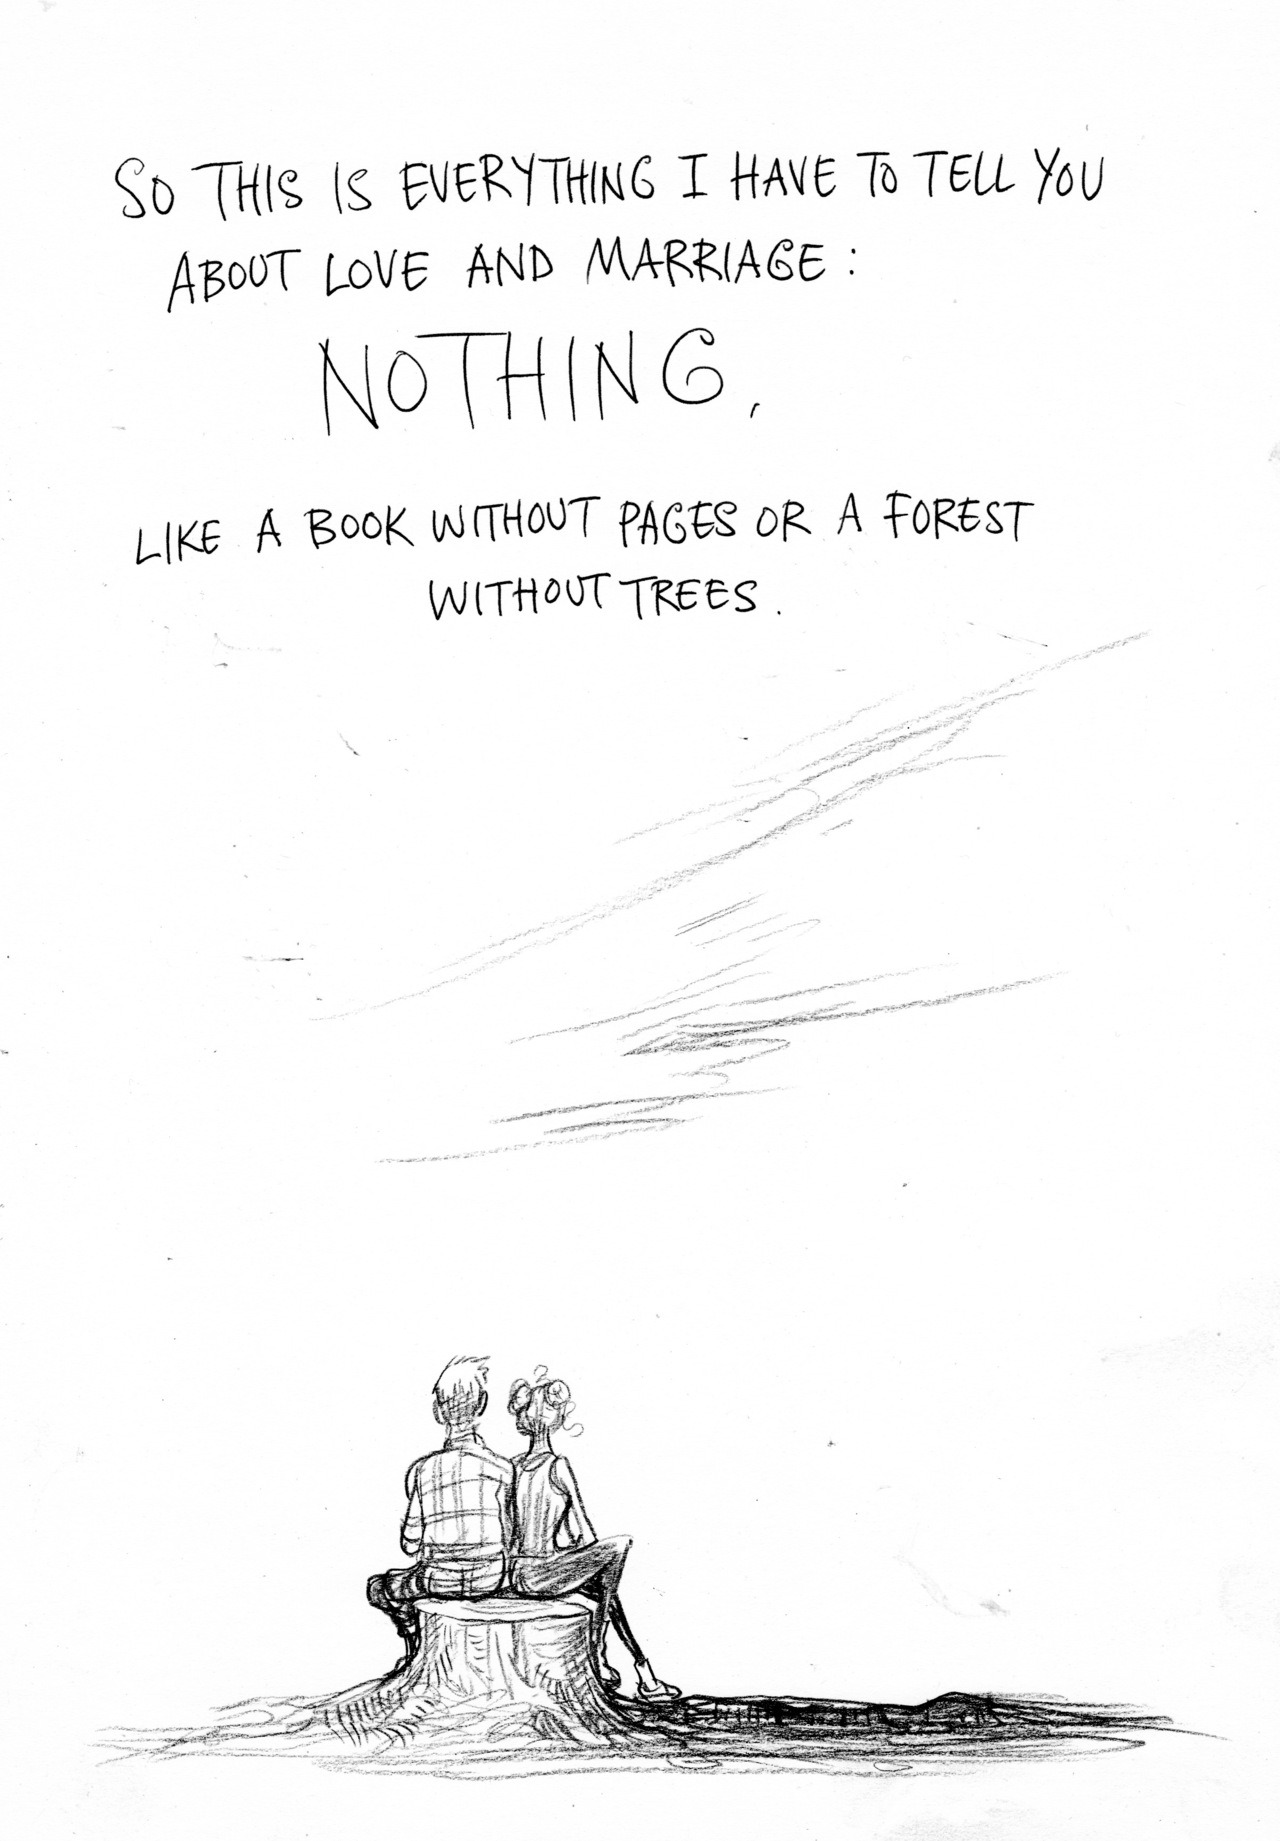 SO THIS IS EVERYTHING I HAVE TO TELL YOU
ABOUT LOVE AND MARRIAGE:
NOTHING,
LIKE A BOOK WITHOUT PAGES OR A FOREST
WITHOUT TREES.